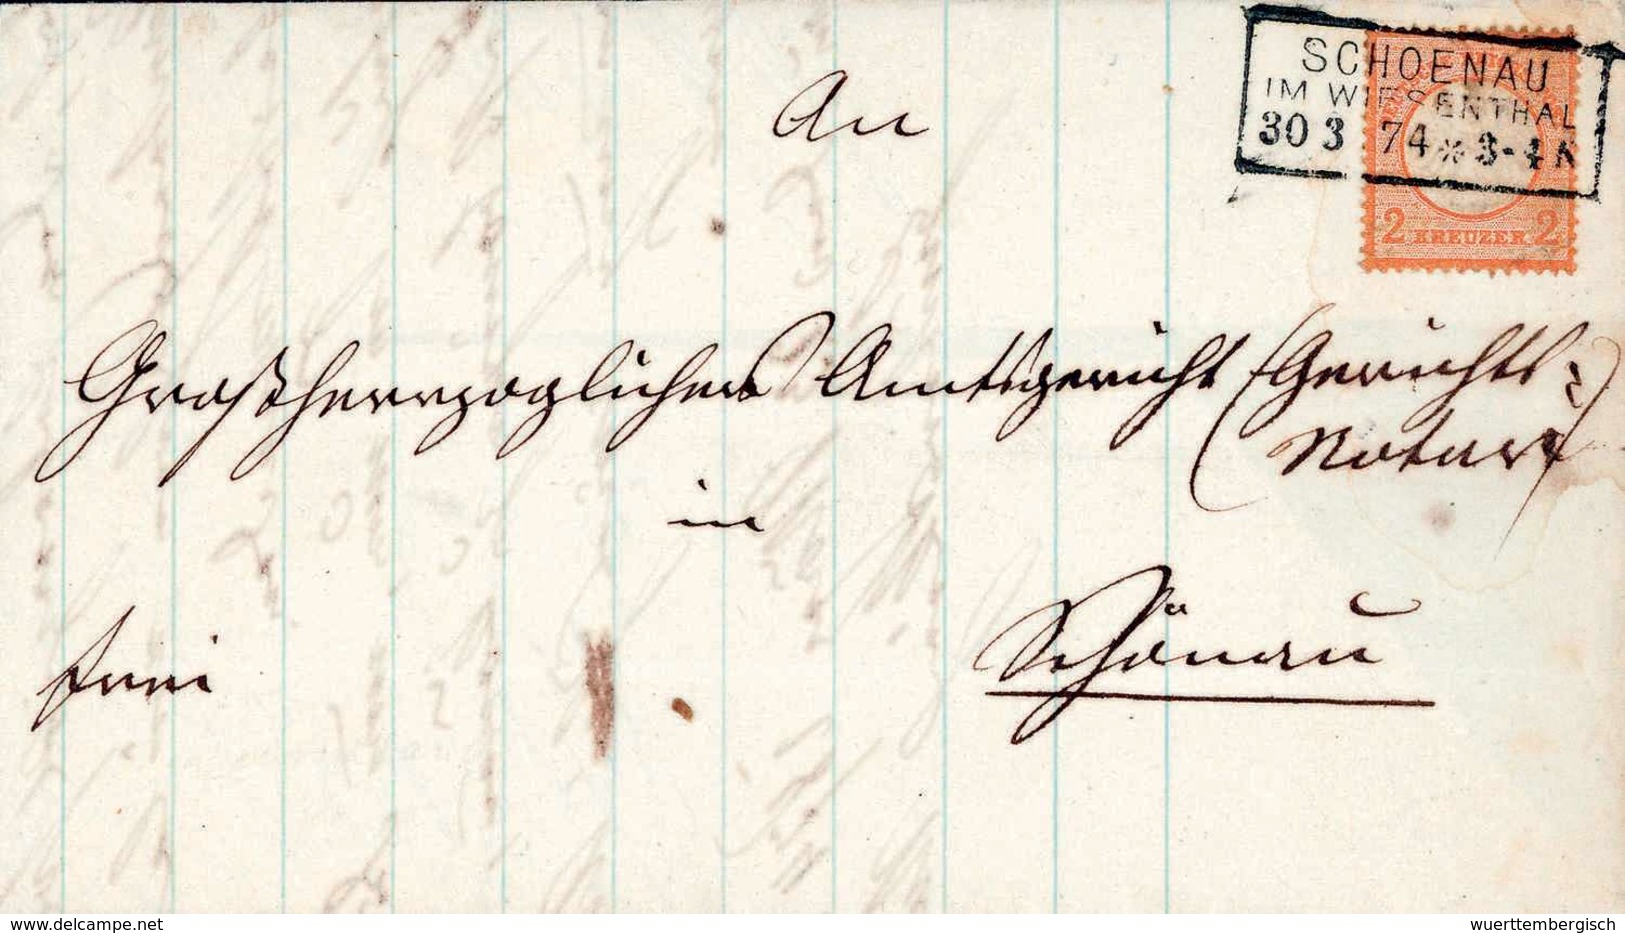 SCHOENAU
IM WIESENTHAL
30 3 74 * 3-4 N
2 KREUZER 2
An
Großherzogliches Amtsgericht (Gerichts=
Notar)
in
Schönau
frei
© www.delcampe.net
wuerttembergisch